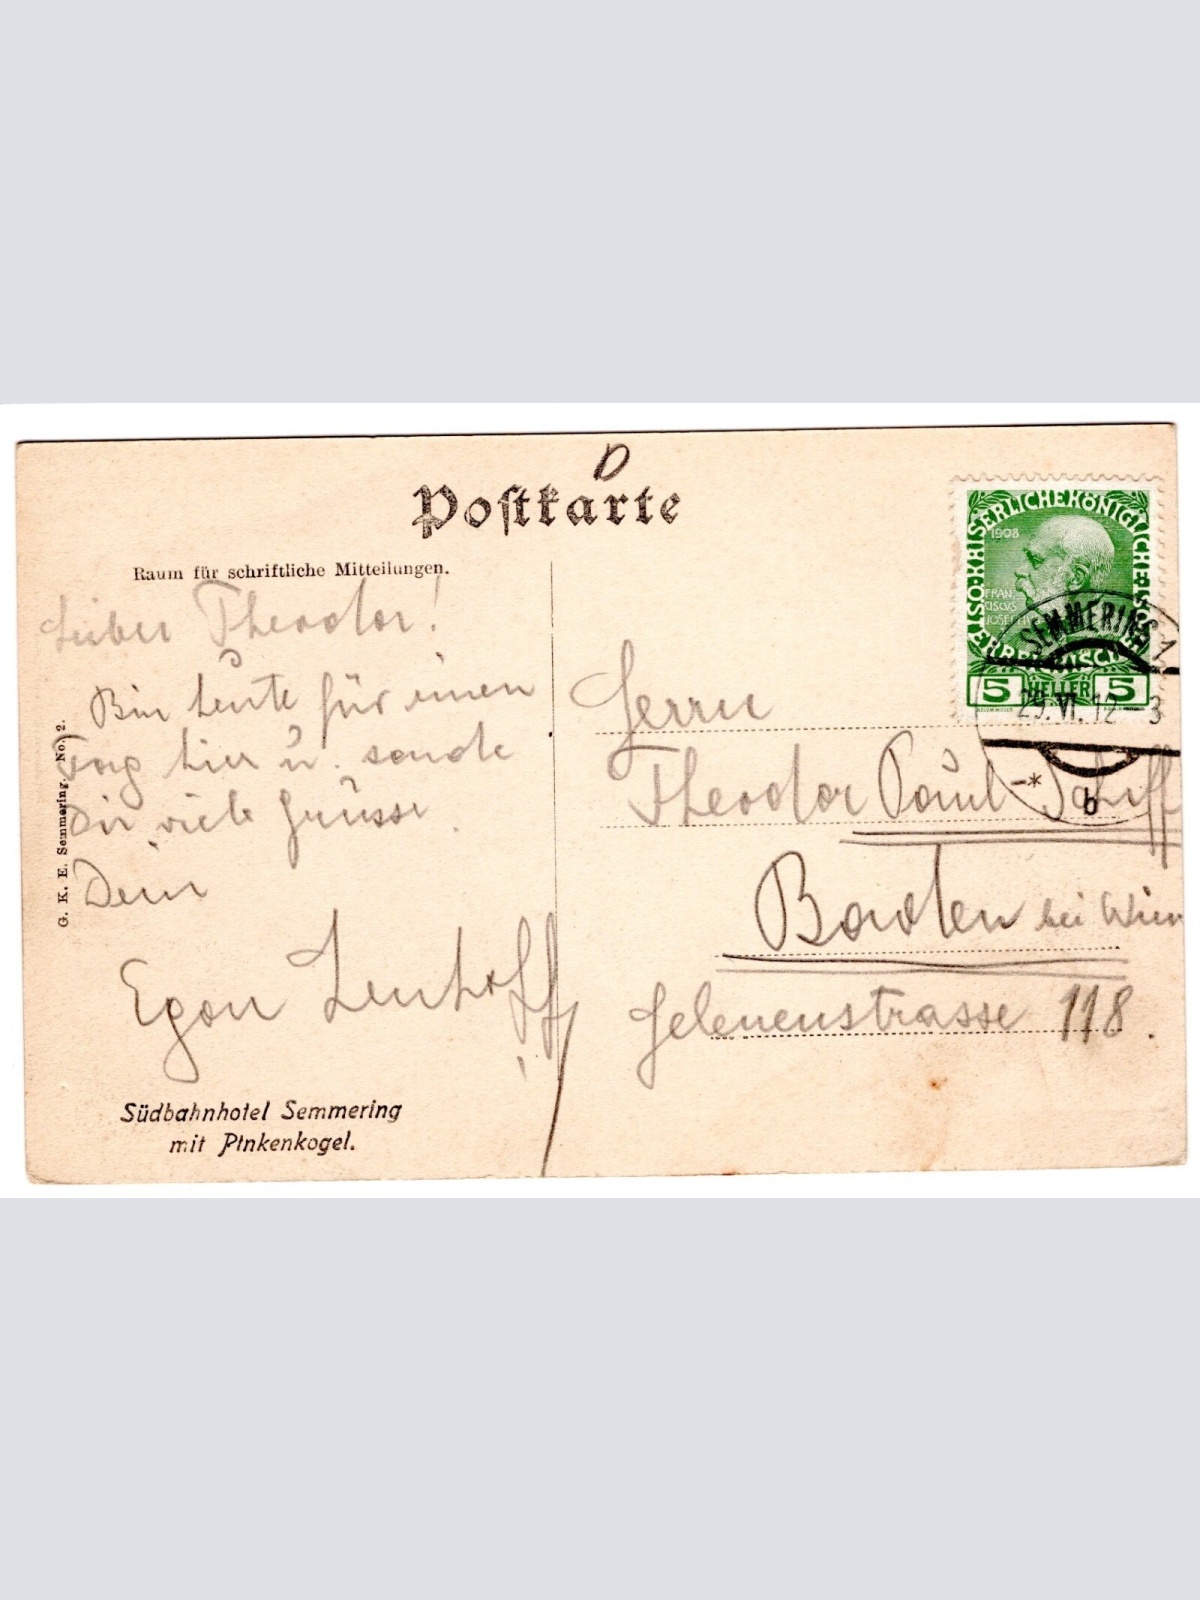 D
Postkarte
Raum für schriftliche Mitteilungen.
Lieber Theodor!
Bin heute für einen
Tag hier u. sende
Dir viele Grüsse.
Dein
Egon Lenhoff!
Südbahnhotel Semmering
mit Pinkenkogel.
G. K. E. Semmering. No. 2.
KAISERLICHE KÖNIGLICHE ÖSTERREICHISCHE
1908
FRAN
CISCVS
JOSEPH
5 HELLER 5
SEMMERING 1
29.VI.12-3
-* b
Herrn
Theodor Paul Schiff
Baden bei Wien
Helenenstrasse 118.